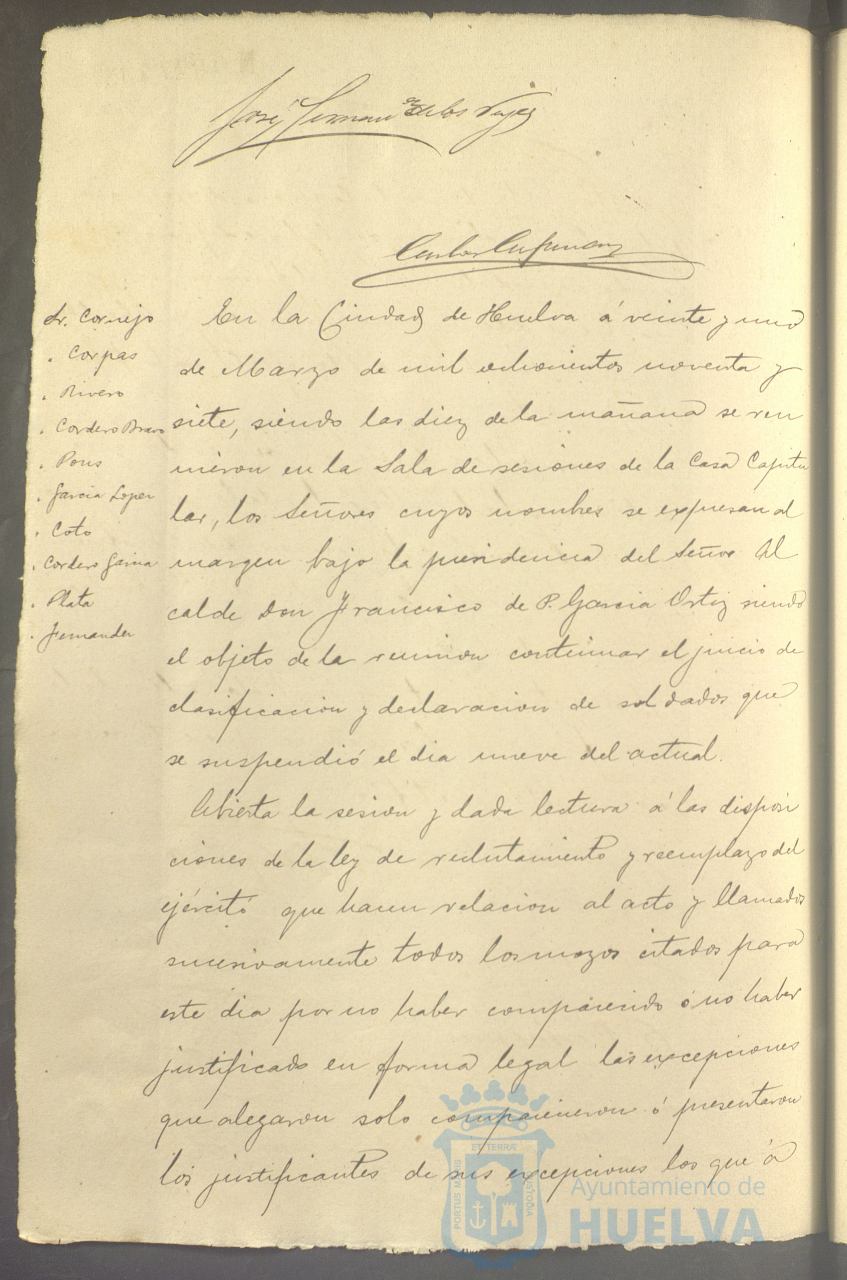 José Fernandez de los Reyes
Sr. Cornejo
" Corpas
" Rivero
" Cordero Bravo
" Pons
" Garcia Lopez
" Coto
" Cordero Garcia
" Plata
" Fernandez
En la Ciudad de Huelva á veinte y uno
de Marzo de mil ochocientos noventa y
siete, siendo las diez de la mañana se reu
nieron en la Sala de sesiones de la Casa Capitu
lar, los Señores cuyos nombres se expresan al
margen bajo la presidencia del Señor Al
calde Don Francisco de P. Garcia Ortiz siendo
el objeto de la reunion continuar el juicio de
clasificacion y declaracion de soldados que
se suspendió el dia nueve del actual.
Abierta la sesion y dada lectura á las disposi
ciones de la ley de reclutamiento y reemplazo del
ejército que hacen relacion al acto y llamados
sucesivamente todos los mozos citados para
este dia por no haber comparecido ó no haber
justificado en forma legal las excepciones
que alegaron solo comparecieron ó presentaron
los justificantes de sus excepciones los que á
PORTUS MARIS ET TERRAE CUSTODIA
Ayuntamiento de
HUELVA